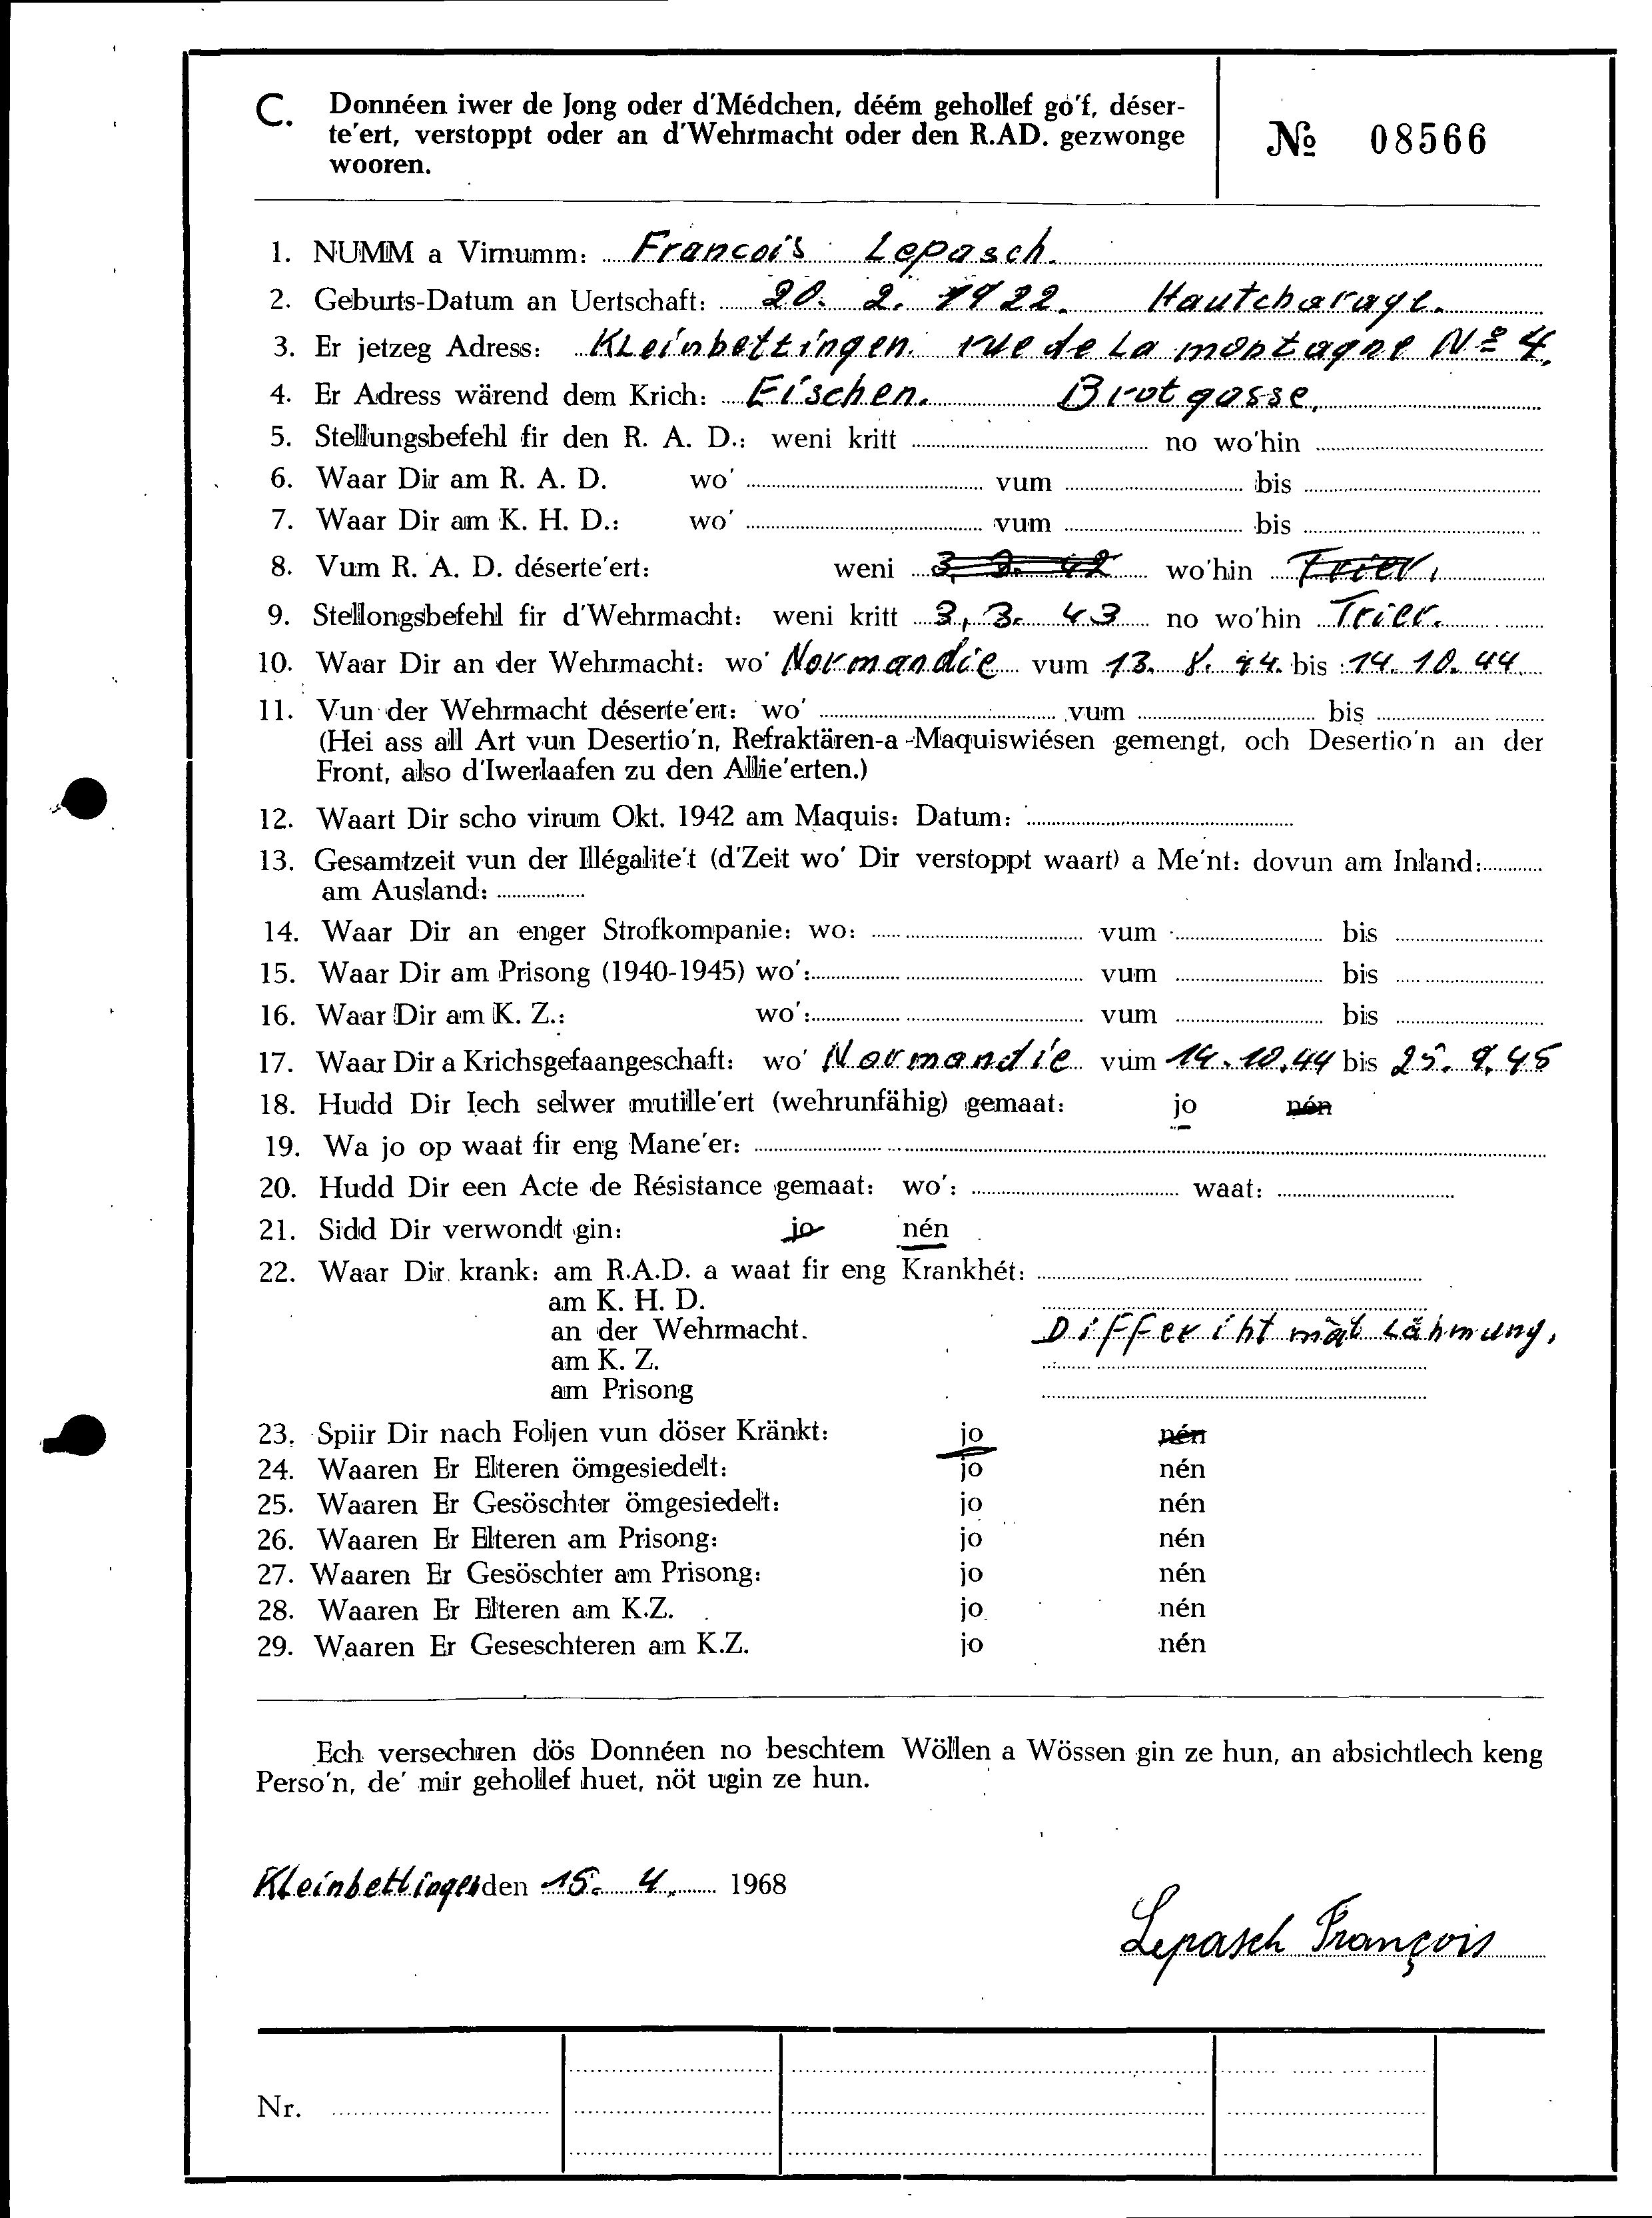 C. Donnéen iwer de Jong oder d'Médchen, déém gehollef go'f, déser-
te'ert, verstoppt oder an d'Wehrmacht oder den R.AD. gezwonge
wooren.
№ 08566
1. NUMM a Virnumm: Francois Lepasch.
2. Geburts-Datum an Uertschaft: 20. 2. 1922. Hautcharage.
3. Er jetzeg Adress: Kleinbettingen. rue de La montagne No 4.
4. Er Adress wärend dem Krich: Eischen. Brotgasse.
5. Stellungsbefehl fir den R. A. D.: weni kritt no wo'hin
6. Waar Dir am R. A. D. wo' vum bis
7. Waar Dir am K. H. D.: wo' vum bis
8. Vum R. A. D. déserte'ert: weni 3. 3. 42 wo'hin Trier.
9. Stellongsbefehl fir d'Wehrmacht: weni kritt 3. 3. 43 no wo'hin Trier.
10. Waar Dir an der Wehrmacht: wo' Normandie vum 13. 8. 44. bis 14. 10. 44.
11. Vun der Wehrmacht déserte'ert: wo' vum bis
(Hei ass all Art vun Desertio'n, Refraktären-a-Maquiswiésen gemengt, och Desertio'n an der
Front, also d'Iwerlaafen zu den Allie'erten.)
12. Waart Dir scho virum Okt. 1942 am Maquis: Datum:
13. Gesamtzeit vun der Illégalite't (d'Zeit wo' Dir verstoppt waart) a Me'nt: dovun am Inland:
am Ausland:
14. Waar Dir an enger Strofkompanie: wo: vum bis
15. Waar Dir am Prisong (1940-1945) wo': vum bis
16. Waar Dir am K. Z.: wo': vum bis
17. Waar Dir a Krichsgefaangeschaft: wo' Normandie vum 14. 10. 44 bis 25. 9. 45
18. Hudd Dir Iech selwer mutille'ert (wehrunfähig) gemaat: jo nén
19. Wa jo op waat fir eng Mane'er:
20. Hudd Dir een Acte de Résistance gemaat: wo': waat:
21. Sidd Dir verwondt gin: jo nén
22. Waar Dir krank: am R.A.D. a waat fir eng Krankhét:
am K. H. D.
an der Wehrmacht. Differiht mat Lähmung.
am K. Z.
am Prisong
23. Spiir Dir nach Foljen vun döser Kränkt: jo nén
24. Waaren Er Elteren ömgesiedelt: jo nén
25. Waaren Er Gesöschter ömgesiedelt: jo nén
26. Waaren Er Elteren am Prisong: jo nén
27. Waaren Er Gesöschter am Prisong: jo nén
28. Waaren Er Elteren am K.Z. jo nén
29. Waaren Er Geseschteren am K.Z. jo nén
Ech versechren dös Donnéen no beschtem Wöllen a Wössen gin ze hun, an absichtlech keng
Perso'n, de' mir gehollef huet, nöt ugin ze hun.
Kleinbettingen den 15. 4. 1968
Lepasch François
Nr.